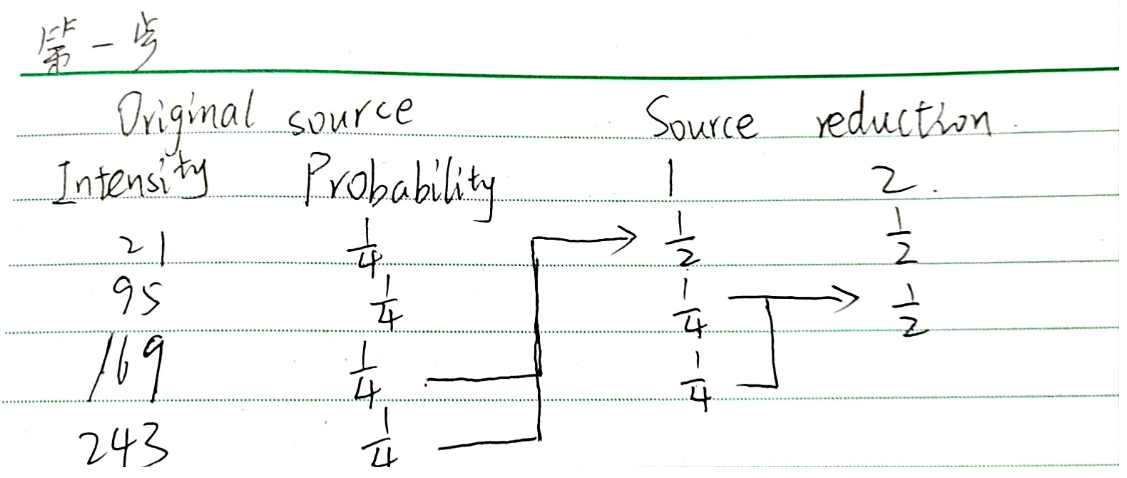 第一步
Original source Source reduction.
Intensity Probability 1 2.
21 1/4 1/2 1/2
95 1/4 1/4 1/2
169 1/4 1/4
243 1/4